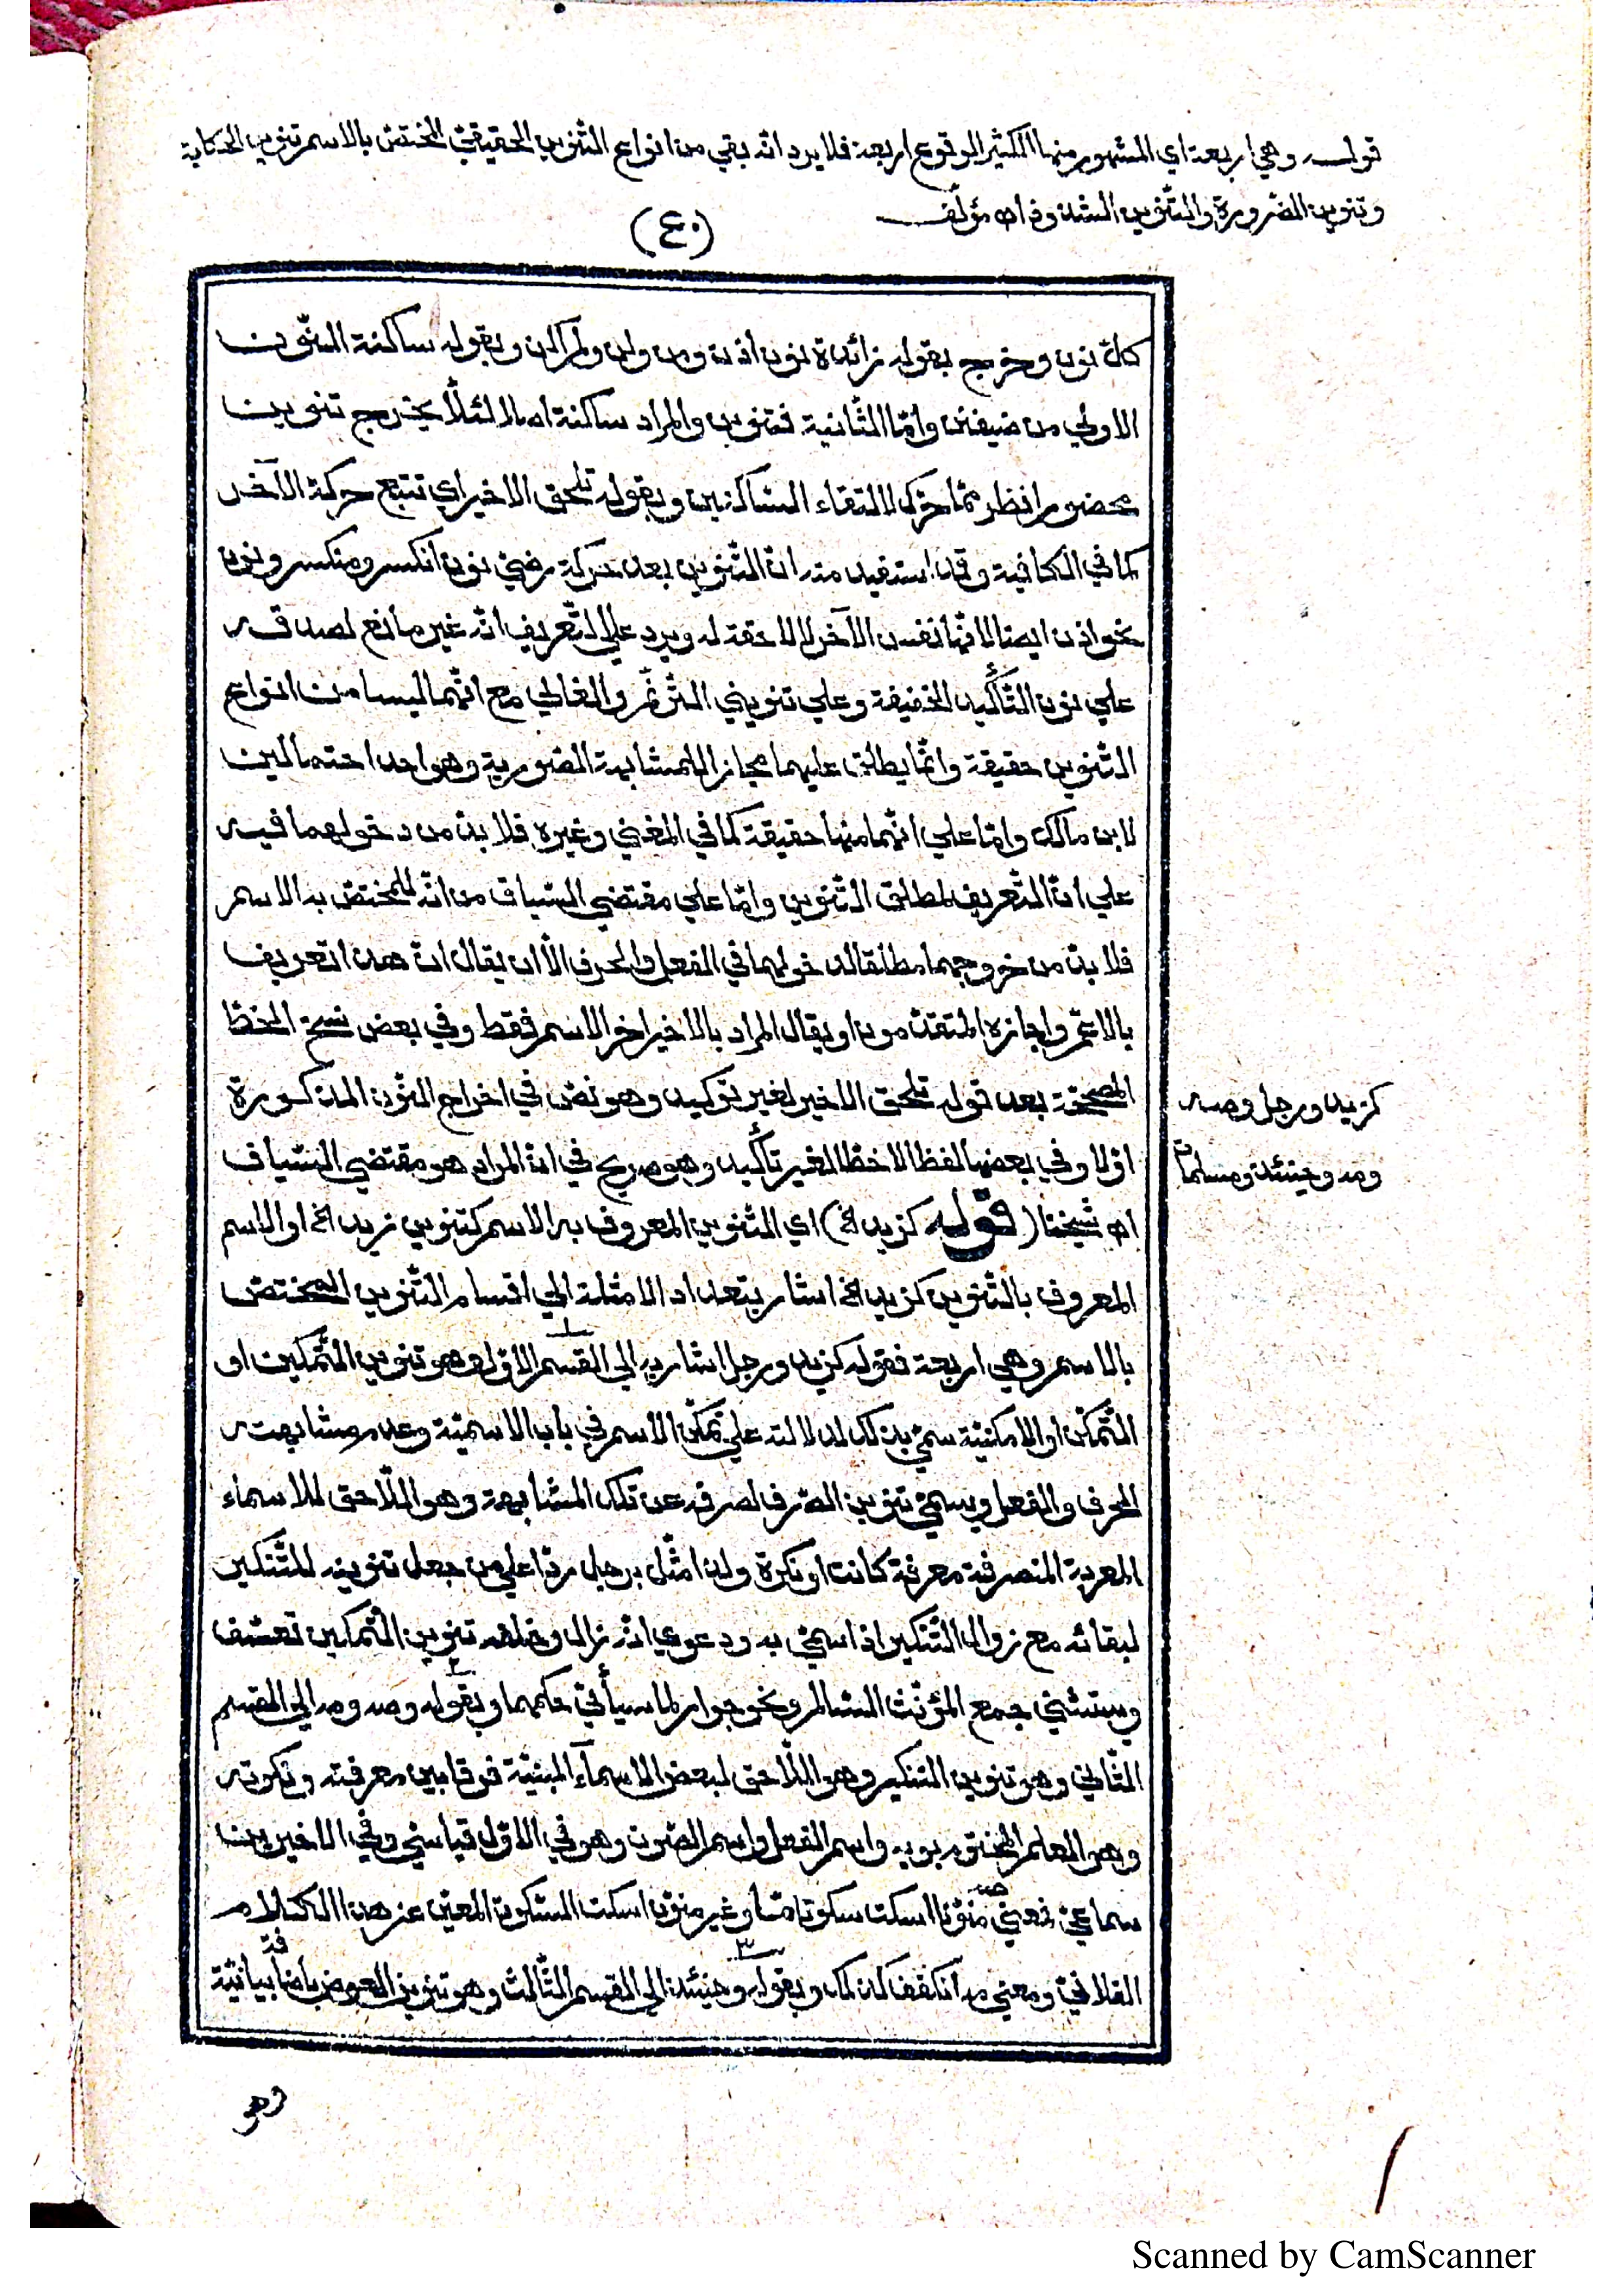 قوله وهي اربعة اي المشهور منها الكثير الوقوع اربعة فلا يرد انّه بقي من انواع التّنوين الحقيقيّ المختصّ بالاسم تنوين الحكاية
وتنوين الضّرورة والتّنوين الشّذوذ اه مؤلّف
(٤٠)
كلّ نون وخرج بقوله زائدة نون اذن ومن ولن ولم الان وبقوله ساكنة النّون
الاولي من ضيفن وامّا الثّانية فتنوين والمراد ساكنة اصالة لئلّا يخرج تنوين
محضورا نظر ممّا حرّك لالتقاء السّاكنين وبقوله تلحق الاخير اي تتبع حركة الآخر
كما في الكافية وقد استفيد منه انّ التّنوين بعد حركة نون انكسر ومنكسر ونون
نحو اذن ايضا لانّها نفس الآخر لا لاحقة له ويرد علي التّعريف انّه غير مانع لصدقه
علي نون التّأكيد الخفيفة وعلي تنويني التّرنّم والغالي مع انّهما ليسا من انواع
التّنوين حقيقة وانّما يطلق عليهما مجازا للمشابهة الصّورية وهو احد احتمالين
لابن مالك وامّا علي انّهما منها حقيقة كما في المغني وغيره فلا بدّ من دخولهما فيه
علي انّ التّعريف لمطلق التّنوين وامّا علي مقتضي السّياق من انّه للمختصّ به الاسم
فلا بدّ من خروجهما مطلقا لدخولهما في الفعل والحرف الّا ان يقال انّ هذا تعريف
بالاعمّ واجازه المتقدّمون او يقال المراد بالاخير اخر الاسم فقط وفي بعض نسخ الخطّ
المصحّحة بعد قوله تلحق الاخير لغير توكيد وهو نصّ في اخراج النّون المذكورة
اوّلا وفي بعضها لفظا لا خطّا لغير تأكيد وهو صريح في انّ المراد هو مقتضي السّياق
اه شيخنا (قوله كزيد الخ) اي التّنوين المعروف به الاسم كتنوين زيد الخ او الاسم
المعروف بالتّنوين كزيد الخ اشار بتعداد الامثلة الي اقسام التّنوين المختصّ
بالاسم وهي اربعة فقوله كزيد ورجل اشار به الي القسم الاوّل وهو تنوين التّمكين او
التّمكّن او الامكنيّة سمّي بذلك لدلالته علي تمكّن الاسم في باب الاسميّة وعدم مشابهته
الحرف والفعل ويسمّي تنوين الصّرف لصرفه عن تلك المشابهة وهو اللّاحق للاسماء
المعربة المنصرفة معرفة كانت او نكرة ولذا مثّل برجل ردّا علي من جعل تنوينه للتّنكير
لبقائه مع زوال التّنكير اذا سمّي به ودعوي انّه زال وخلفه تنوين التّمكين تعسّف
ويستثني جمع المؤنّث السّالم ونحو جوار لما سيأتي حكمهما وبقوله وصه ومه الي القسم
الثّاني وهو تنوين التّنكير وهو اللّاحق لبعض الاسماء المبنيّة فرقا بين معرفته ونكرته
وهو العلم المختوم بويه واسم الفعل واسم الصّوت وهو في الاوّل قياسيّ وفي الاخيرين
سماعيّ فمعني صه منوّنا اسكت سكوتا مّا وغير منوّن اسكت السّكوت المعيّن عن هذا الكلام
الفلانيّ ومعني مه انكفف كذلك وبقوله وحينئذ الي القسم الثّالث وهو تنوين العوض باضافة بيانيّة
كزيد ورجل وصه
ومه وحينئذ ومسلمات
وهو
Scanned by CamScanner